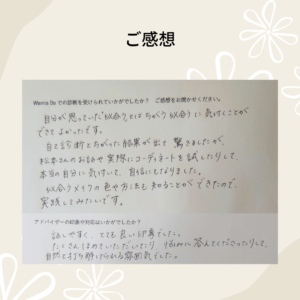 ご感想
Wanna Be での診断を受けられていかがでしたか？　ご感想をお聞かせください。
自分が思っていた"似合う"とはちがう"似合う"に気付くことが
できてよかったです。
自己診断とちがった結果が出て驚きましたが、
松本さんのお話や実際にコーディネートを試したりして、
本当の自分に気付いて、自信にもなりました。
似合うメイクの色や方法も知ることができたので、
実践してみたいです。
アドバイザーの印象や対応はいかがでしたか？
話しやすく、とても良い印象でした。
たくさんほめていただいたり、悩みに答えてくださったりして、
自然と打ち解けられる雰囲気でした。